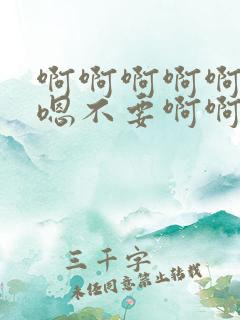 啊啊啊啊啊
嗯不要啊啊
三千字
未经同意禁止转载